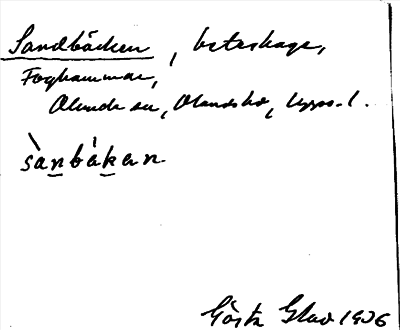 Sandbäcken, beteshage,
Foghammar,
Alunda sn, Olands hd, Upps. l.
sanbäkan
Gösta Glav 1906